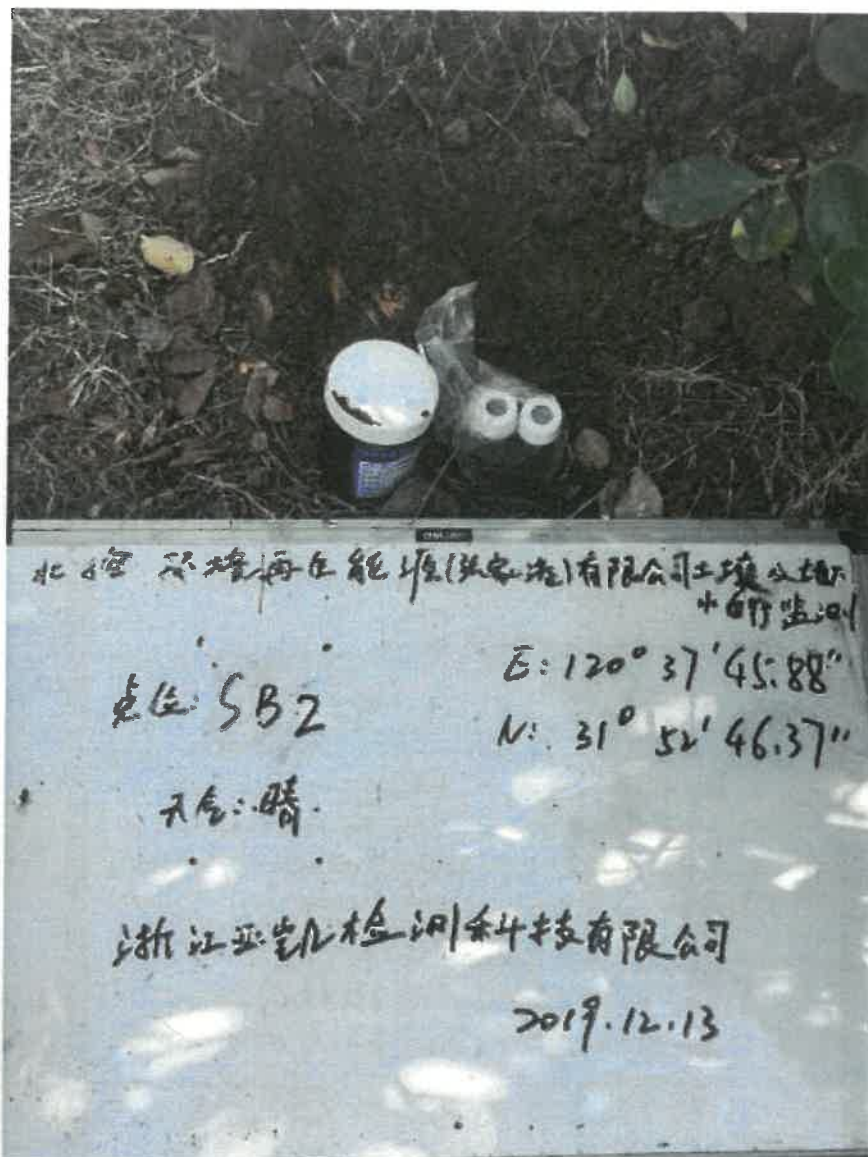 北控环境再生能源(张家港)有限公司土壤及地下
水自行监测
点位:SB2
E:120°37'45.88"
N:31°52'46.37"
天气:晴.
浙江亚凯检测科技有限公司
2019.12.13